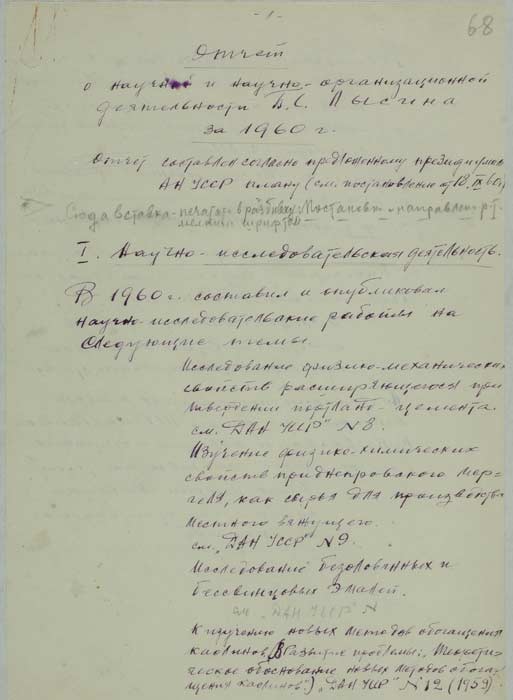 - 1 -
68
Отчет
о научной и научно-организационной
деятельности Б. С. Лысина
за 1960 г.
Отчет составлен согласно предложенному президиумом
АН УССР плану (см. постановление от
Сюда вставка - печатать в разбивку
мелким шрифтом
I. Научно-исследовательская деятельность.
В 1960 г. составил и опубликовал
научно-исследовательские работы на
следующие темы.
Исследование физико-механических
свойств расширяющегося при
твердении портланд-цемента.
см. "ДАН УССР" N 8.
Изучение физико-химических
свойств приднепровского мер=
геля, как сырья для производства
местного вяжущего.
см. "ДАН УССР" N 9.
Исследование безоловянных и
бессвинцовых эмалей.
см. "ДАН УССР" N
К изучению новых методов обогащения
каолинов (Развитие проблемы: "Теорети=
ческое обоснование новых методов обога=
щения каолинов") "ДАН УССР" N 12 (1959).